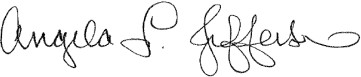 Angela P. Jefferson